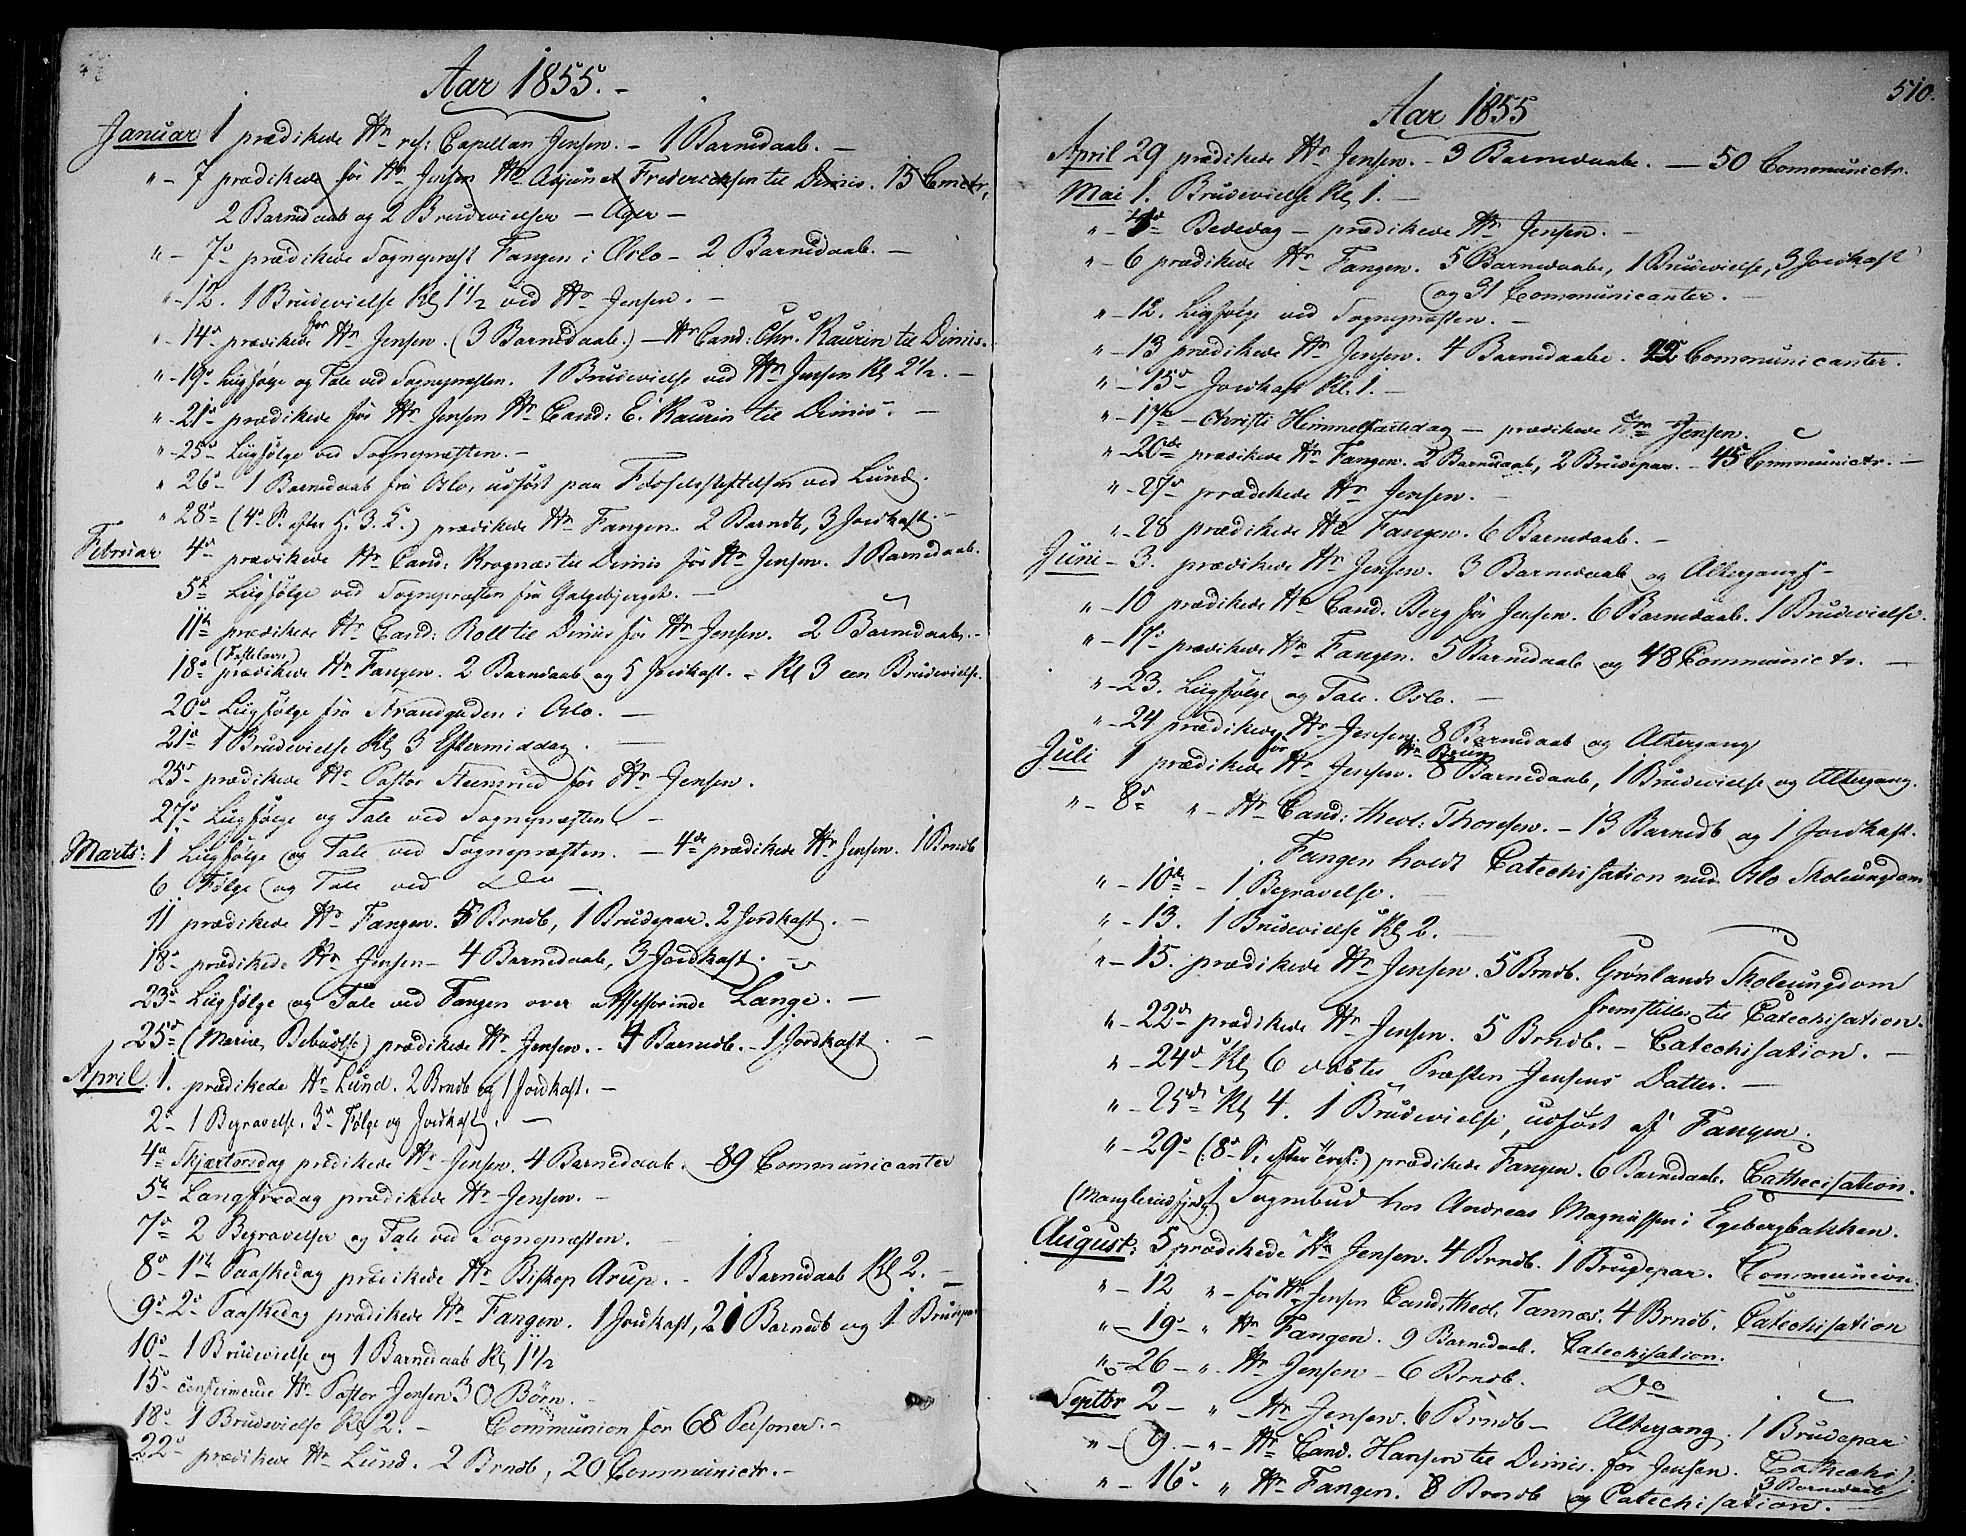 Aar 1855. -
Januar 1 prædikede Hr res: Capellan Jensen. - 1 Barnedaab. -
" - 7 prædikede for Hr Jensen Hr Adjunct Frederichsen til Dimis. 15 Cmctr,
2 Barnedaab og 2 Brudevielser - Ager -
" - 7de prædikede Sognepræst Fangen i Oslo - 2 Barnedaab. -
" - 12. 1 Brudevielse Kl 1 1/2 ved Hr Jensen. -
" - 14de prædikede for Hr Jensen. (3 Barnedaab.) - Hr Cand: Chr. Kaurin til Dimis.
" - 19de Liigfølge og Tale ved Sognepræsten. 1 Brudevielse ved Hr Jensen Kl 2 1/2. -
" - 21de prædikede for Hr Jensen Hr Cand: E. Kaurin til Dimis. -
" - 25de Liigfølge ved Sognepræsten. -
" 26de - 1 Barnedaab fra Oslo, udført paa Fødselsstiftelsen ved Lund.
" 28de (4de S. efter H. 3 K.) prædikede Hr Fangen. 2 Barndb, 3 Jordkast. -
Februar 4de prædikede Hr Cand: Krognæs til Dimis for Hr Jensen. 1 Barnedaab.
5te Liigfølge ved Sognepræsten fra Galgebjerget. -
11te prædikede Hr Cand: Roll til Dimis for Hr Jensen. 2 Barnedaab. -
18de (Fastelavn) prædikede Hr Fangen. 2 Barndaab og 5 Jordkast. - Kl 3 een Brudevielse.
20de Liigfølge fra Strandgaden i Oslo. -
21de 1 Brudevielse Kl 3 Eftermiddag. -
25de prædikede Hr Pastor Steensrud for Hr Jensen.
27de Liigfølge og Tale ved Sognepræsten. -
Marts: 1 Liigfølge og Tale ved Sognepræsten. - 4de prædikede Hr Jensen. 1 Brndb
6 Følge og Tale ved Do -
11 prædikede Hr Fangen. 5 Brndb, 1 Brudepar. 2 Jordkast. -
18de prædikede Hr Jensen - 4 Barnedaab, 3 Jordkast. -
23de Liigfølge og Tale ved Fangen over Assessorinde Lange. -
25de (Mariæ Bebudlse) prædikede Hr Jensen. - 4 Barndb. - 1 Jordkast. -
April. 1. prædikede Hr Lund. 2 Brndb og 1 Jordkast. -
2de 1 Begravelse. 3de Følge og Jordkast. -
4de Skjærtorsdag prædikede Hr Jensen. 4 Barnedaab. - 89 Communicanter
5te Langfredag prædikede Hr Jensen. -
7de 2 Begravelser og Tale ved Sognepræsten. -
8de 1ste Paaskedag prædikede Hr Biskop Arup. - 1 Barnedaab Kl 2. -
9de 2de Paaskedag prædikede Hr Fangen. 1 Jordkast, 21 Barnedb og 1 Brudepar
10de 1 Brudevielse og 1 Barnedaab Kl 1 1/2
15de confirmerede Hr Pastor Jensen 30 Børn. -
18de 1 Brudevielse Kl 2. - Communion for 68 Personer. -
22de prædikede Hr Lund. 2 Brndb, 20 Communictr. -
510.
Aar 1855
April 29 prædikede Hr Jensen. - 3 Barnedaabe. - 50 Communictr.
Mai 1. Brudevielse Kl 1. -
" - 4de Bededag - prædikede Hr Jensen. -
" - 6 prædikede Hr Fangen. 5 Barnedaabe, 1 Brudevielse, 3 Jordkast
og 31 Communicanter. -
" - 12. Liigfølge ved Sognepræsten. -
" - 13 prædikede Hr Jensen. 4 Barnedaabe. Communicanter.
" - 15de Jordkast Kl. 1. -
" - 17de - Christi Himmelfartsdag - prædikede Hr Jensen.
" - 20de prædikede Hr Fangen. 2 Barndaab, 2 Brudepar. - 45 Communictr. -
" - 27de prædikede Hr Jensen. -
" - 28 prædikede Hr Fangen. 6 Barnedaab. -
Juni - 3. prædikede Hr Jensen. 3 Barnedaab og Altergang. -
" - 10 prædikede Hr Cand. Berg for Jensen. 6 Barnedaab. 1 Brudevielse.
" - 17de prædikede Hr Fangen. 5 Barnedaab og 48 Communictr. -
" - 23. Liigfølge og Tale. Oslo. -
" - 24 prædikede Hr Jensen. 8 Barnedaab og Altergang
Juli 1 prædikede for Hr Jensen. Hr Bruun 8 Barnedaab, 1 Brudevielse og Altergang.
" - 8de " - Hr Cand: theol: Thoresen. - 13 Barnedb og 1 Jordkast.
Fangen holdt Catechisation med Oslo Skoleungdom
" - 10de - 1 Begravelse. -
" - 13. 1 Brudevielse Kl 2. -
" - 15. prædikede Hr Jensen. 5 Brndb. Grønlands Skoleungdom
fremstilles til Catechisation.
" - 22de prædikede Hr Jensen. 5 Brndb. - Catechisation. -
" - 24de Kl 6 døbtes Præsten Jensens Datter. -
" - 25de Kl 4. 1 Brudevielse, udført af Fangen.
" - 29de (8de S. efter Tref:) prædikede Fangen. 6 Barnedaab. Cathecisation.
(Manglerud) 1 Sognebud hos Andreas Magnussen i Egebergbakken.
August: 5 prædikede Hr Jensen. 4 Brndb. 1 Brudepar. Communion.
" - 12 " - for Hr Jensen Cand. theol. Tannæs. 4 Brndb. Catechisation
" - 19de - " Hr Fangen. 9 Barnedaab. Catechisation.
" - 26 - " Hr Jensen - 6 Brndb. Do
Septbr 2 - " - Hr Jensen. 6 Brndb - Altergang. 1 Brudepar
" - 9. - " - Hr Cand. Hansen til Dimis. for Jensen. Cathechis.
3 Barnedaab
" - 16de " Hr Fangen. 8 Brndb og Catechisation. -